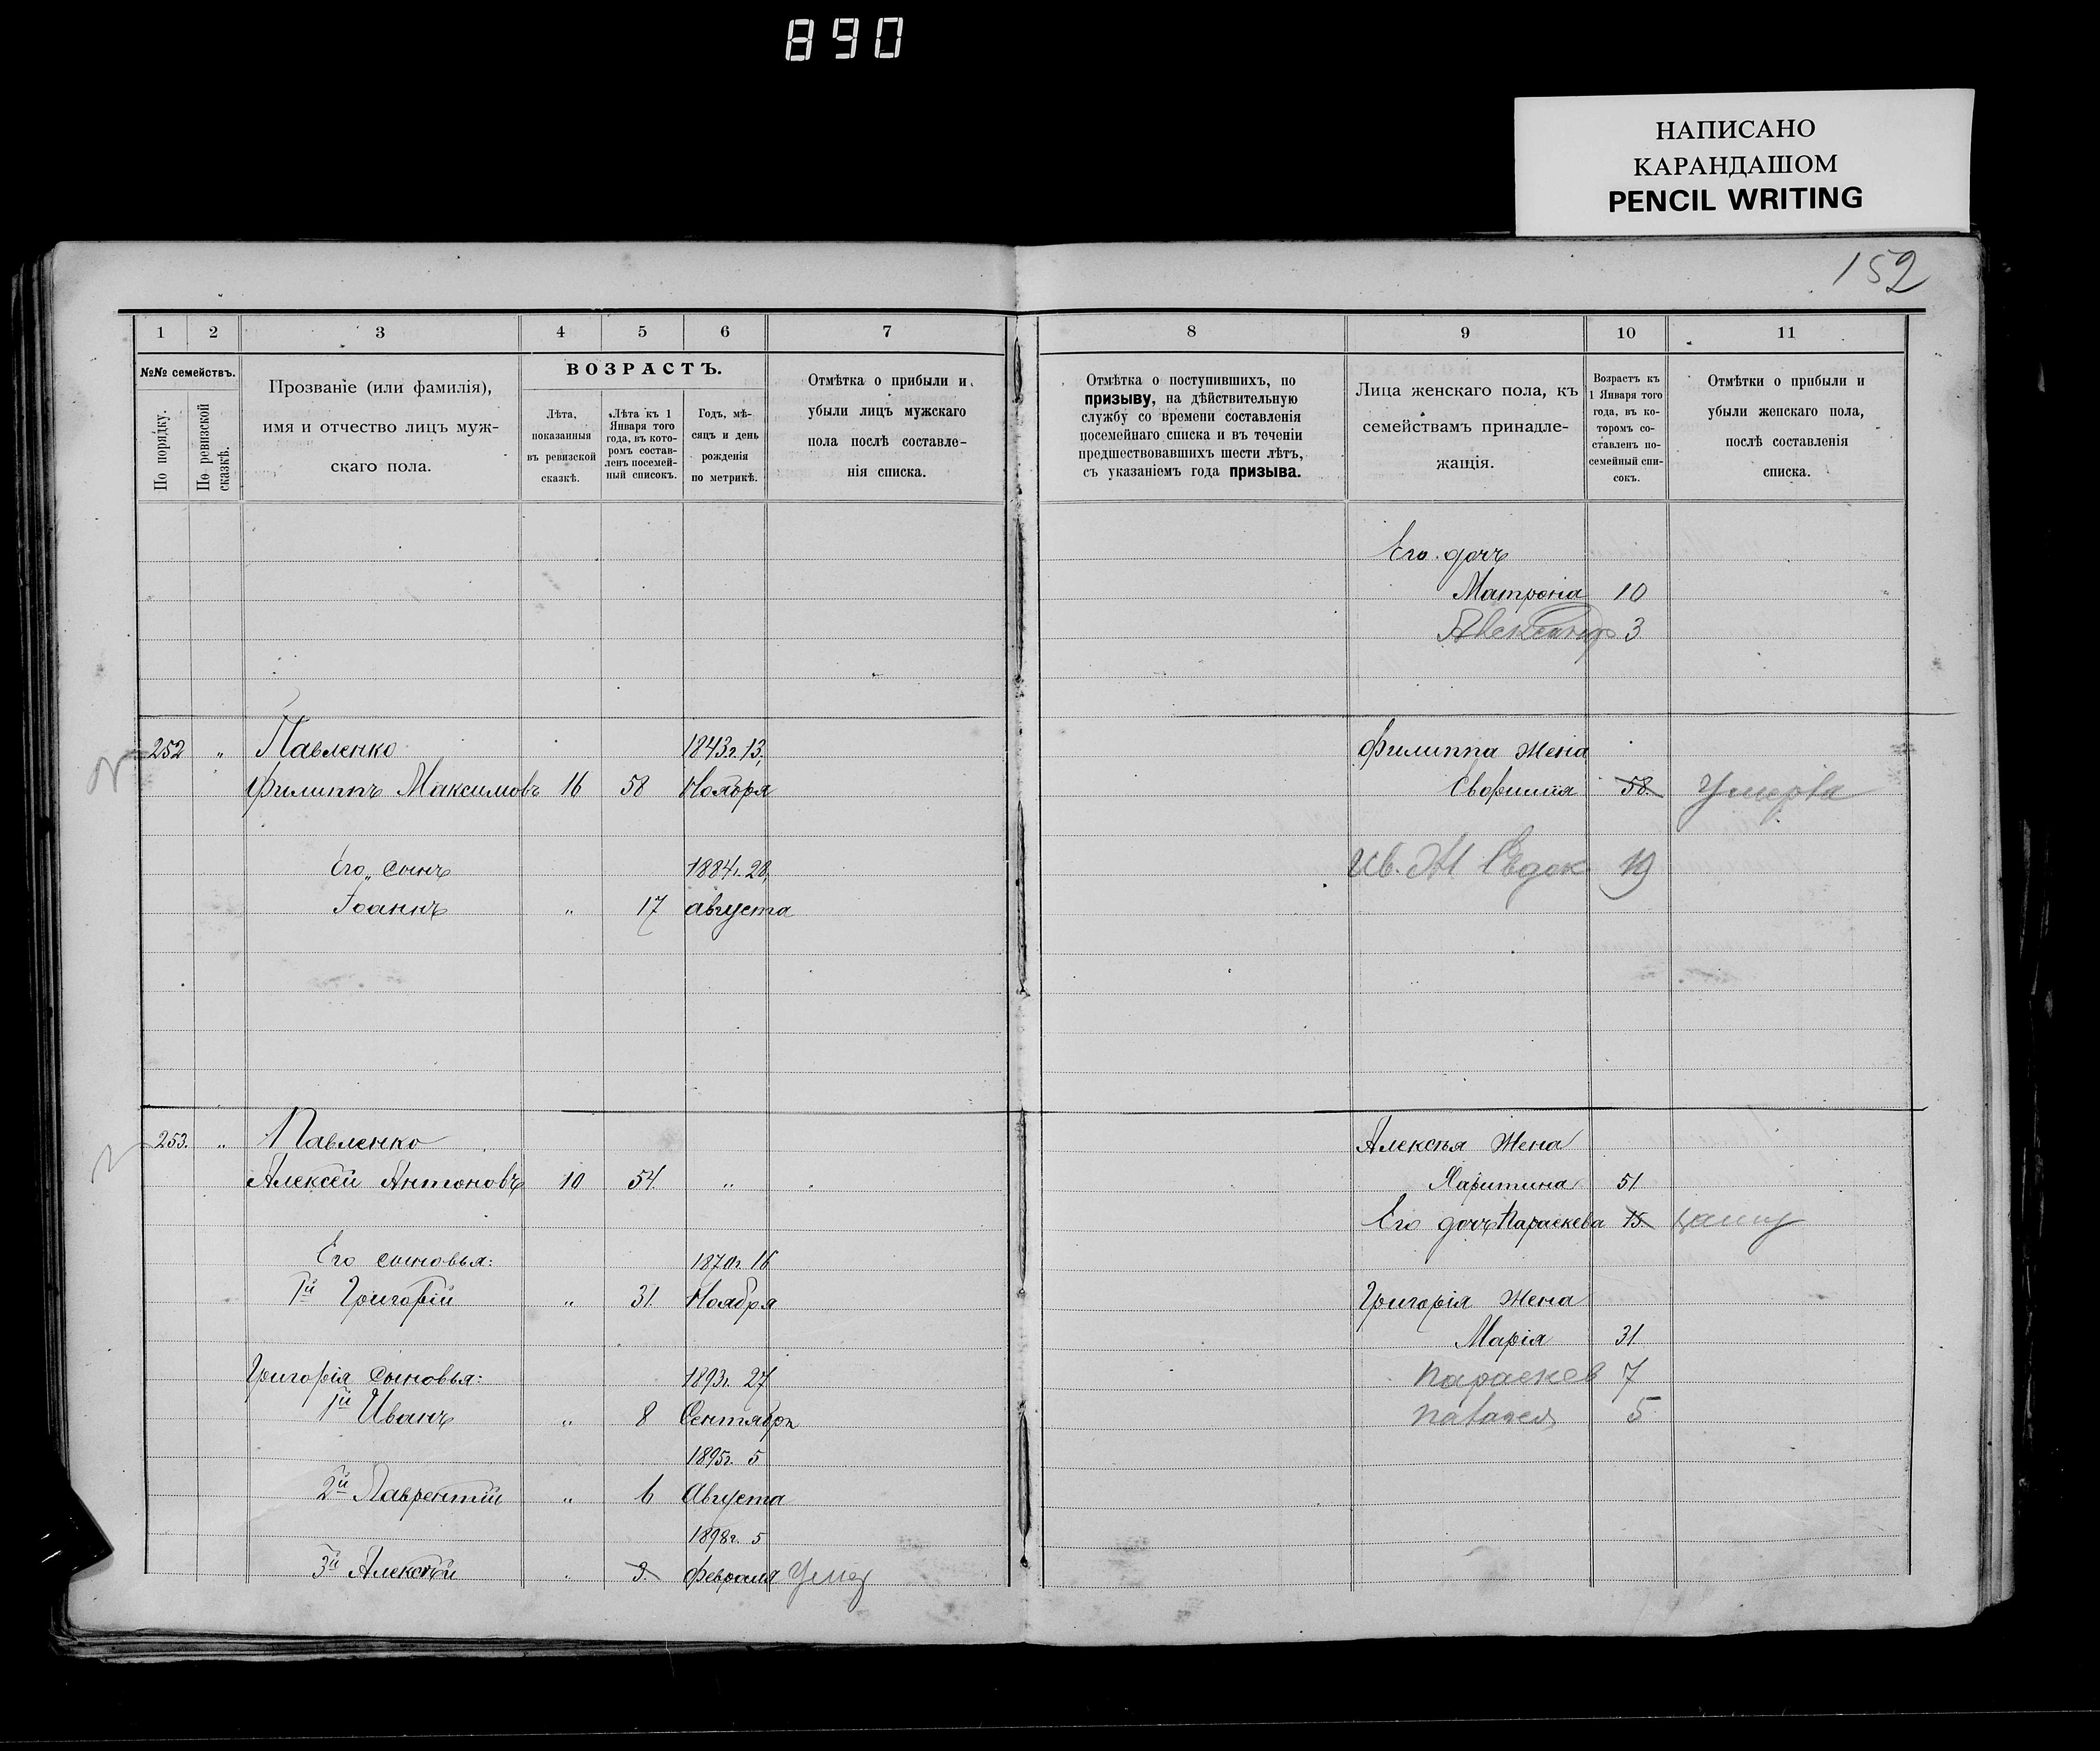 890
НАПИСАНО
КАРАНДАШОМ
PENCIL WRITING
152
1 2 3 4 5 6 7
№№ семействъ.
По порядку.
По ревизской сказкѣ.
Прозваніе (или фамилія),
имя и отчество лицъ муж-
скаго пола.
ВОЗРАСТЪ.
Лѣта,
показанныя
въ ревизской
сказкѣ.
Лѣта къ 1
Января того
года, въ кото-
ромъ состав-
ленъ посемей-
ный списокъ.
Годъ, мѣ-
сяцъ и день
рожденія
по метрикѣ.
Отмѣтка о прибыли и
убыли лицъ мужскаго
пола послѣ составле-
нія списка.
252 " Павленко 1843г. 13,
Филиппъ Максимовъ 16 58 Ноября
Его сынъ 1884г. 28,
Іоаннъ " 17 августа
253. " Павленко
Алексѣй Антоновъ 10 54 "
Его сыновья: 1870г. 16
1й Григорій " 31 Ноября
Григорія сыновья: 1893г. 27
1й Иванъ " 8 Сентября
1895г. 5
2й Лаврентій " 6 Августа
1898г. 5
3й Алексѣй 3. Февраля Умер
8 9 10 11
Отмѣтка о поступившихъ, по
призыву, на дѣйствительную
службу со времени составленія
посемейнаго списка и въ теченіи
предшествовавшихъ шести лѣтъ,
съ указаніемъ года призыва.
Лица женскаго пола, къ
семействамъ принадле-
жащія.
Возрастъ къ
1 Января того
года, въ ко-
торомъ со-
ставленъ по-
семейный спи-
сокъ.
Отмѣтки о прибыли и
убыли женскаго пола,
послѣ составленія
списка.
Его дочь
Матрона 10
Александр 3
Филиппа жена
Евфимия 58. Умерла
Ив. Ж Евдок 19
Алексѣя Жена
Харитина 51
Его дочь Параскева 15. замуж
Григорія Жена
Марія 31
Параскев 7
5